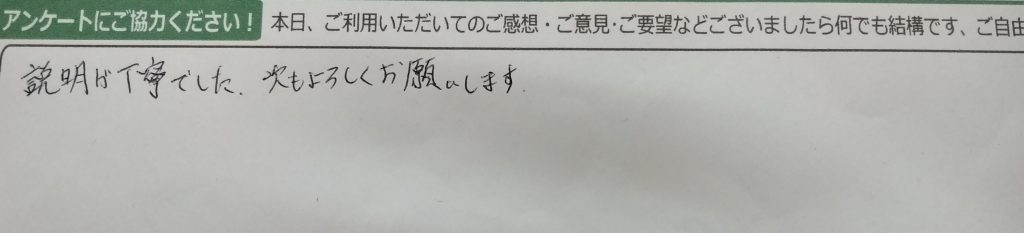 アンケートにご協力ください！ 本日、ご利用いただいてのご感想・ご意見・ご要望などございましたら何でも結構です、ご自由
説明が丁寧でした。次もよろしくお願いします。